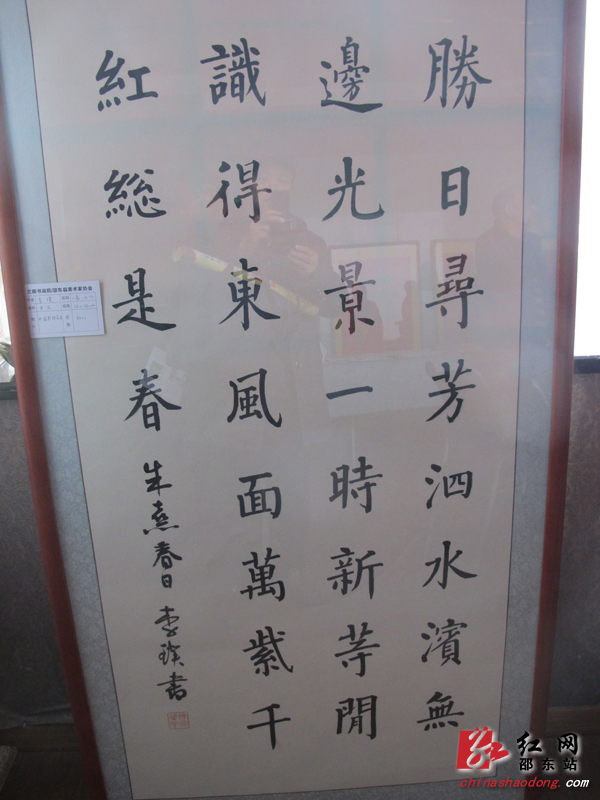 勝日尋芳泗水濱無
邊光景一時新等閒
識得東風面萬紫千
紅総是春
朱熹春日 李瑛書
红网
邵东站
chinashaodong.com